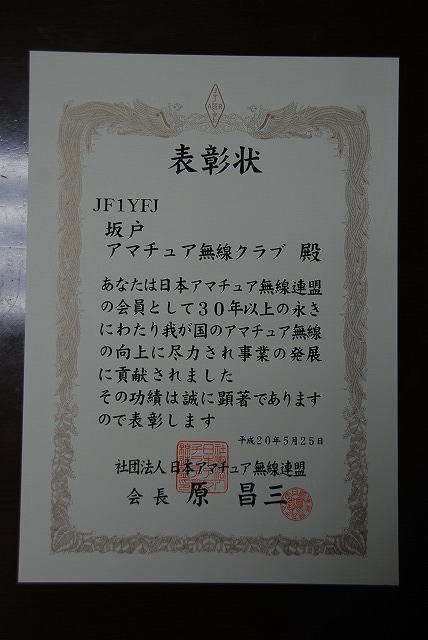 表彰状
JF1YFJ
坂戸
アマチュア無線クラブ 殿
あなたは日本アマチュア無線連盟
の会員として30年以上の永き
にわたり我が国のアマチュア無線
の向上に尽力され事業の発展
に貢献されました
その功績は誠に顕著であります
ので表彰します
平成20年5月25日
社団法人日本アマチュア無線連盟
会長 原 昌三